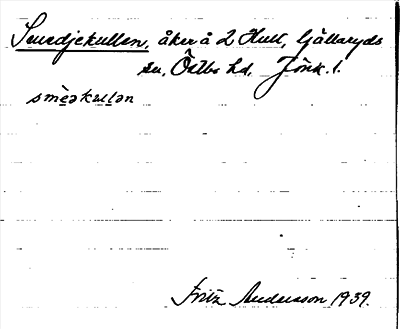 Smedjekullen, åker å 2 Hult, Gällaryds
sn, Östbo hd, Jönk. l.
smèəkulən
Fritz Andersson 1939.